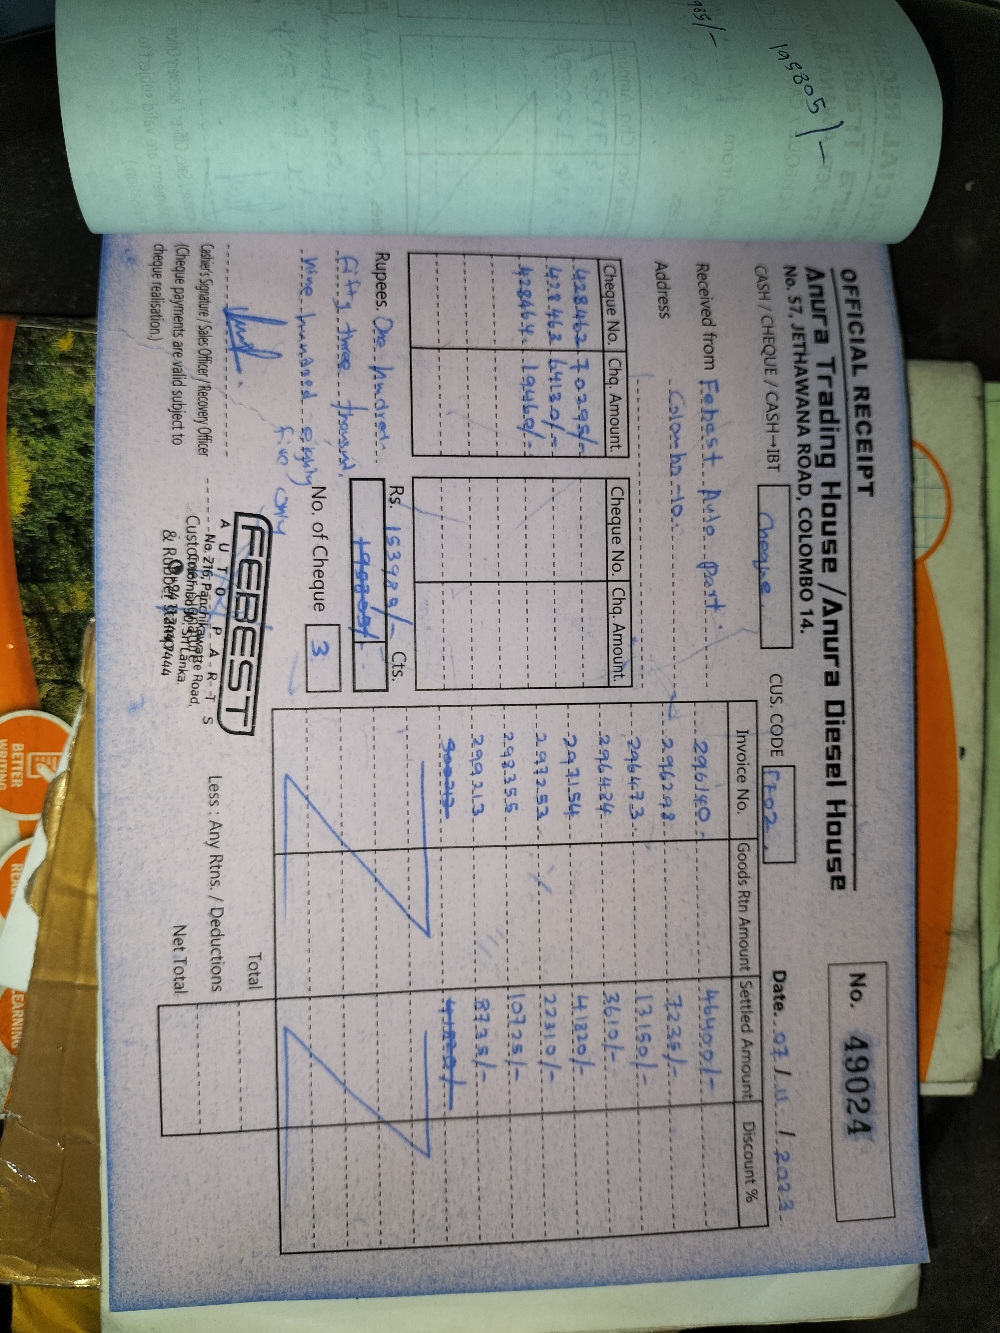 198805/-
OFFICIAL RECEIPT
Anura Trading House / Anura Diesel House
No. 57, JETHAWANA ROAD, COLOMBO 14.
No. 49024
CASH / CHEQUE / CASH-IBT Cheque
CUS. CODE F702
Date. 07 / 11 / 2023
Received from Febest Auto part.
Address Colombo-10.
Cheque No. Chq. Amount.
428462 70295/-
428463 64130/-
428464 19460/-
Cheque No. Chq. Amount.
Invoice No. Goods Rtn Amount Settled Amount Discount %
296140 46400/-
296298 7235/-
296473 13150/-
296484 3610/-
297154 41820/-
297253 22310/-
298355 10725/-
299213 8735/-
41820/-
Rupees. One hundred
fifty three thousand
nine hundred eighty
five only
Rs. 153985/- Cts.
198805/-
No. of Cheque 3
Cashier's Signature / Sales Officer / Recovery Officer
(Cheque payments are valid subject to
cheque realisation.)
FEBEST
AUTO PARTS
No. 216, Panchikawatte Road,
Colombo 10, Sri Lanka.
& Rubber
Total
Less : Any Rtns. / Deductions
Net Total
BETTER
WRITING
LEARNING